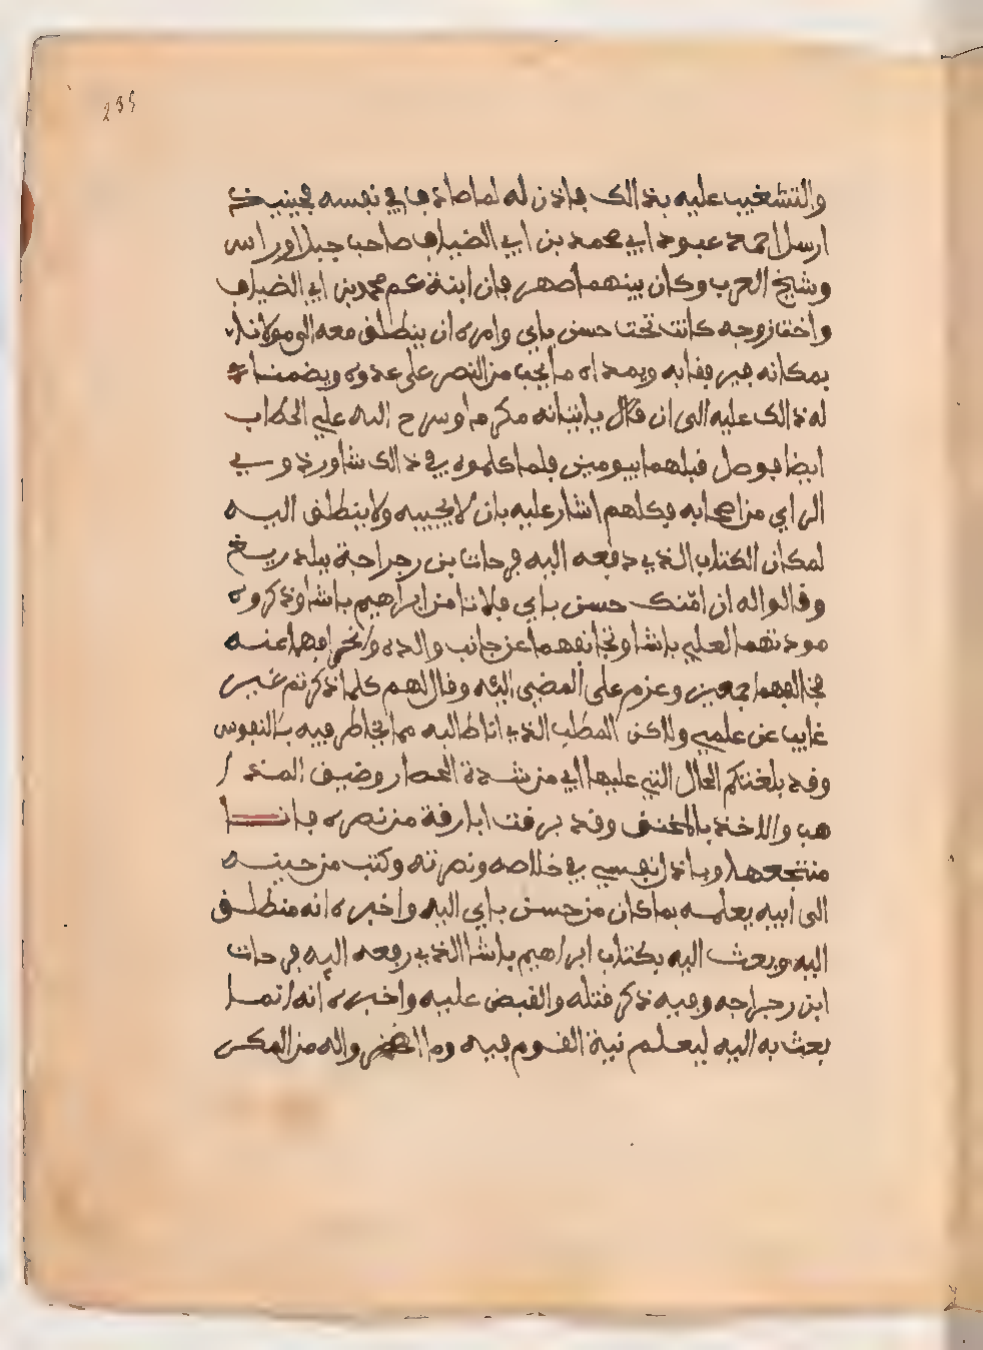 235
والتشغيب عليه بذالك فاذن له لما صادفا في نفسه فحينيذ
ارسل احمد عبود ابي محمد بن ابي الضياف صاحب جبل اوراس
وشيخ العرب وكان بينهما صهر فان ابنة عم محمد بن ابي الضياف
واخت زوجه كانت تحت حسن باي وامره ان ينطلق معه الى مولانا
بمكانه وبمداه ما يجب من النصر على عدوه ويضمنا
له ذالك عليه الى ان قال ياتيانه مكرما وسرح اليه علي الحطاب
ايضا فوصل قبلهما بيومين فلما كلموه في ذالك شاور ذوي
الراي من اصحابه فكلهم اشار عليه بان لا يجيبه ولا ينطلق اليه
لمكان الكتاب الذي دفعه اليه فرحات بن رجراجة ببلد ريغ
وقالوا له ان امنك حسن باي فلا تامن ابراهيم باشا وذكروه
مودتهما لعلي باشا وتجانفهما عن جانب والده وانحرافهما عنه
فخالفهم اجمعين وعزم على المضي اليه وقال لهم كلما ذكرتم غير
غايب عن علمي ولاكن المطلب الذي انا طالبه مما يخاطر فيه بالنفوس
وقد بلغتكم الحال التي عليها ابي من شدة الحصار وضيق المذ
هب والاخذ بالمخنق وقد برقت ابارقة من نصره فانا
منتجعها وباذل نفسي في خلاصه ونصرته وكتب من حينه
الى ابيه يعلمه بما كان من حسن باي اليه واخبره انه منطلق
اليه وبعث اليه بكتاب ابراهيم باشا الذي رفعه اليه فرحات
ابن رجراجه وفيه ذكر قتله والقبض عليه واخبره انه انما
بعث به اليه ليعلم نية القوم فيه وما اضمروا له من المكر